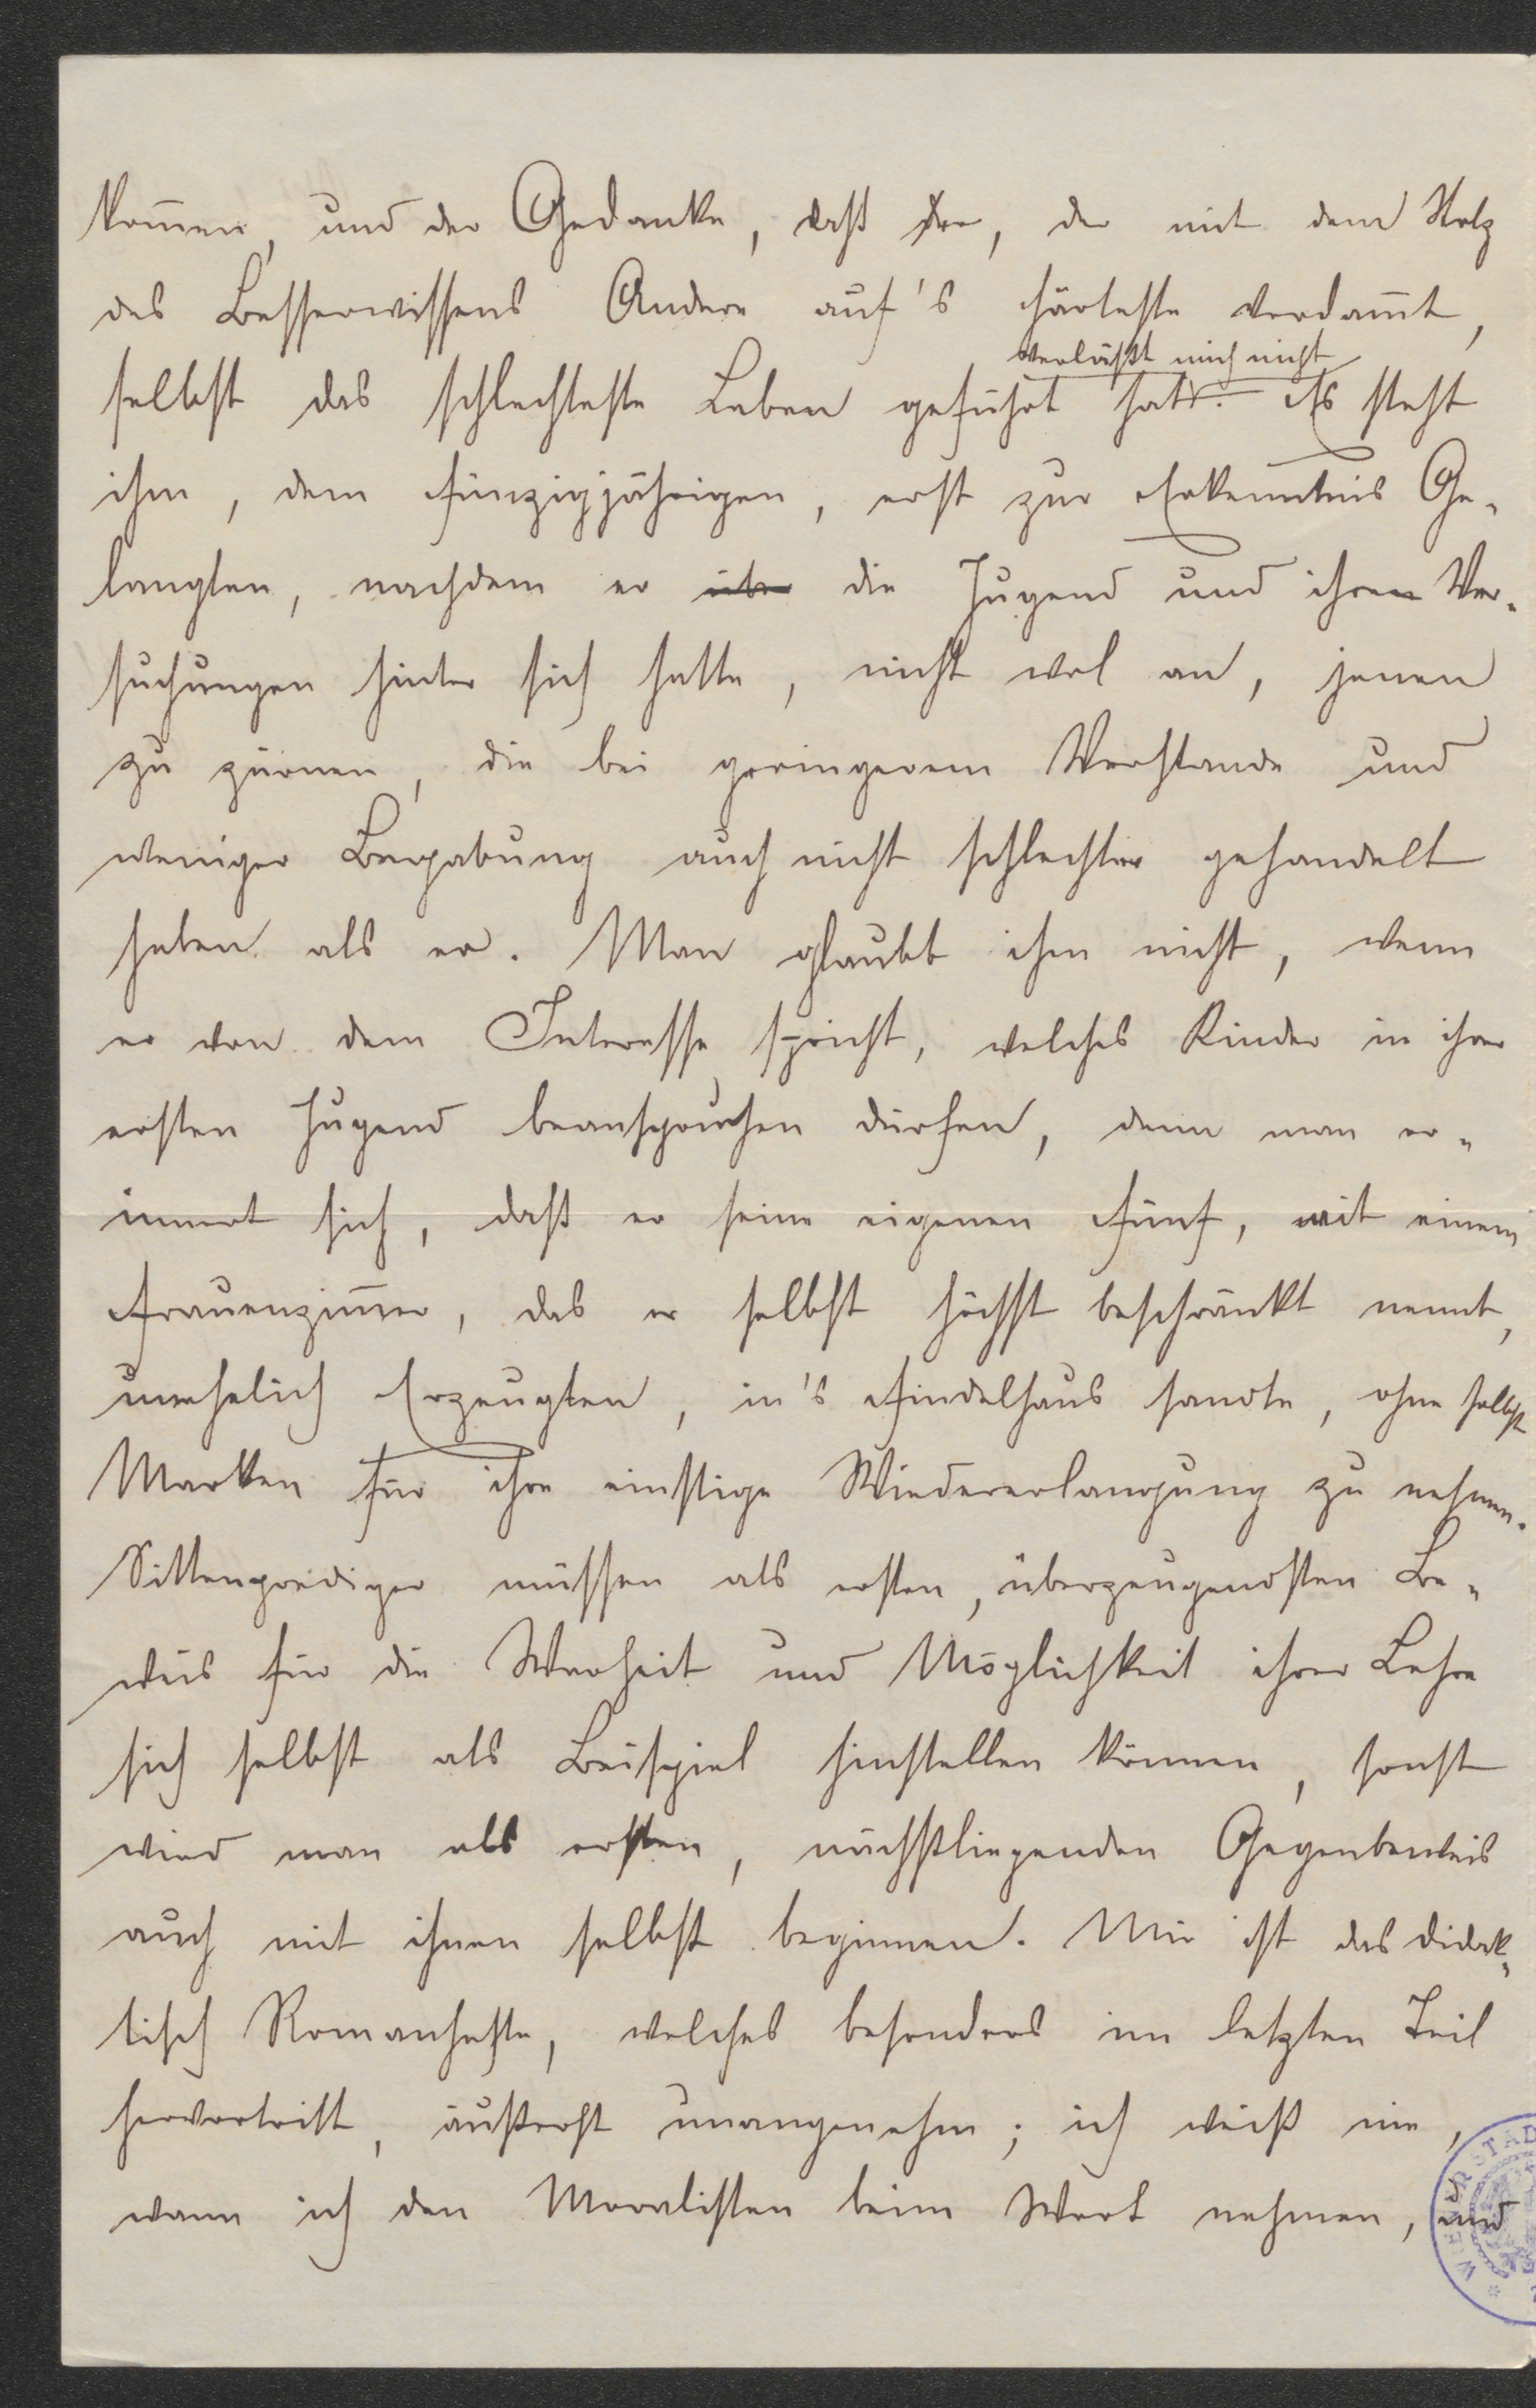 kom̄en, und der Gedanke, daß der, der mit dem Stolz
des Besserwissens Andere auf's härteste verdam̄t,
verläßt mich nicht
selbst das schlechteste Leben geführt hat. Es steht
ihm, dem fünzigjährigen, erst zur Erkenntnis Ge-
langten, nachdem er über die Jugend und ihren Ver-
suchungen hinter sich hatte, nicht wol an, jenen
zu zürnen, die bei geringerem Verstande und
weniger Begabung auch nicht schlechter gehandelt
haben als er. Man glaubt ihm nicht, wenn
er von dem Interesse spricht, welches Kinder in ihrer
ersten Jugend beanspruchen dürfen, denn man er-
innert sich, daß er seine eigenen fünf, mit einem
Frauenzim̄er, das er selbst höchst beschränkt nennt,
unehelich Erzeugten, in's Findelhaus sandte, ohne selbst
Marken für ihre einstige Wiedererlangung zu nehmen.
Sittenprediger müssen als ersten, überzeugendsten Be-
weis für die Warheit und Möglichkeit ihrer Lehre
sich selbst als Beispiel hinstellen können, sonst
wird man als ersten, nächstliegenden Gegenbeweis
auch mit ihnen selbst beginnen. Mir ist das didak-
tisch Romanhafte, welches besonders im letzten Teil
hervortritt, äußerst unangenehm; ich weiß nie,
wann ich den Moralisten beim Wort nehmen, und